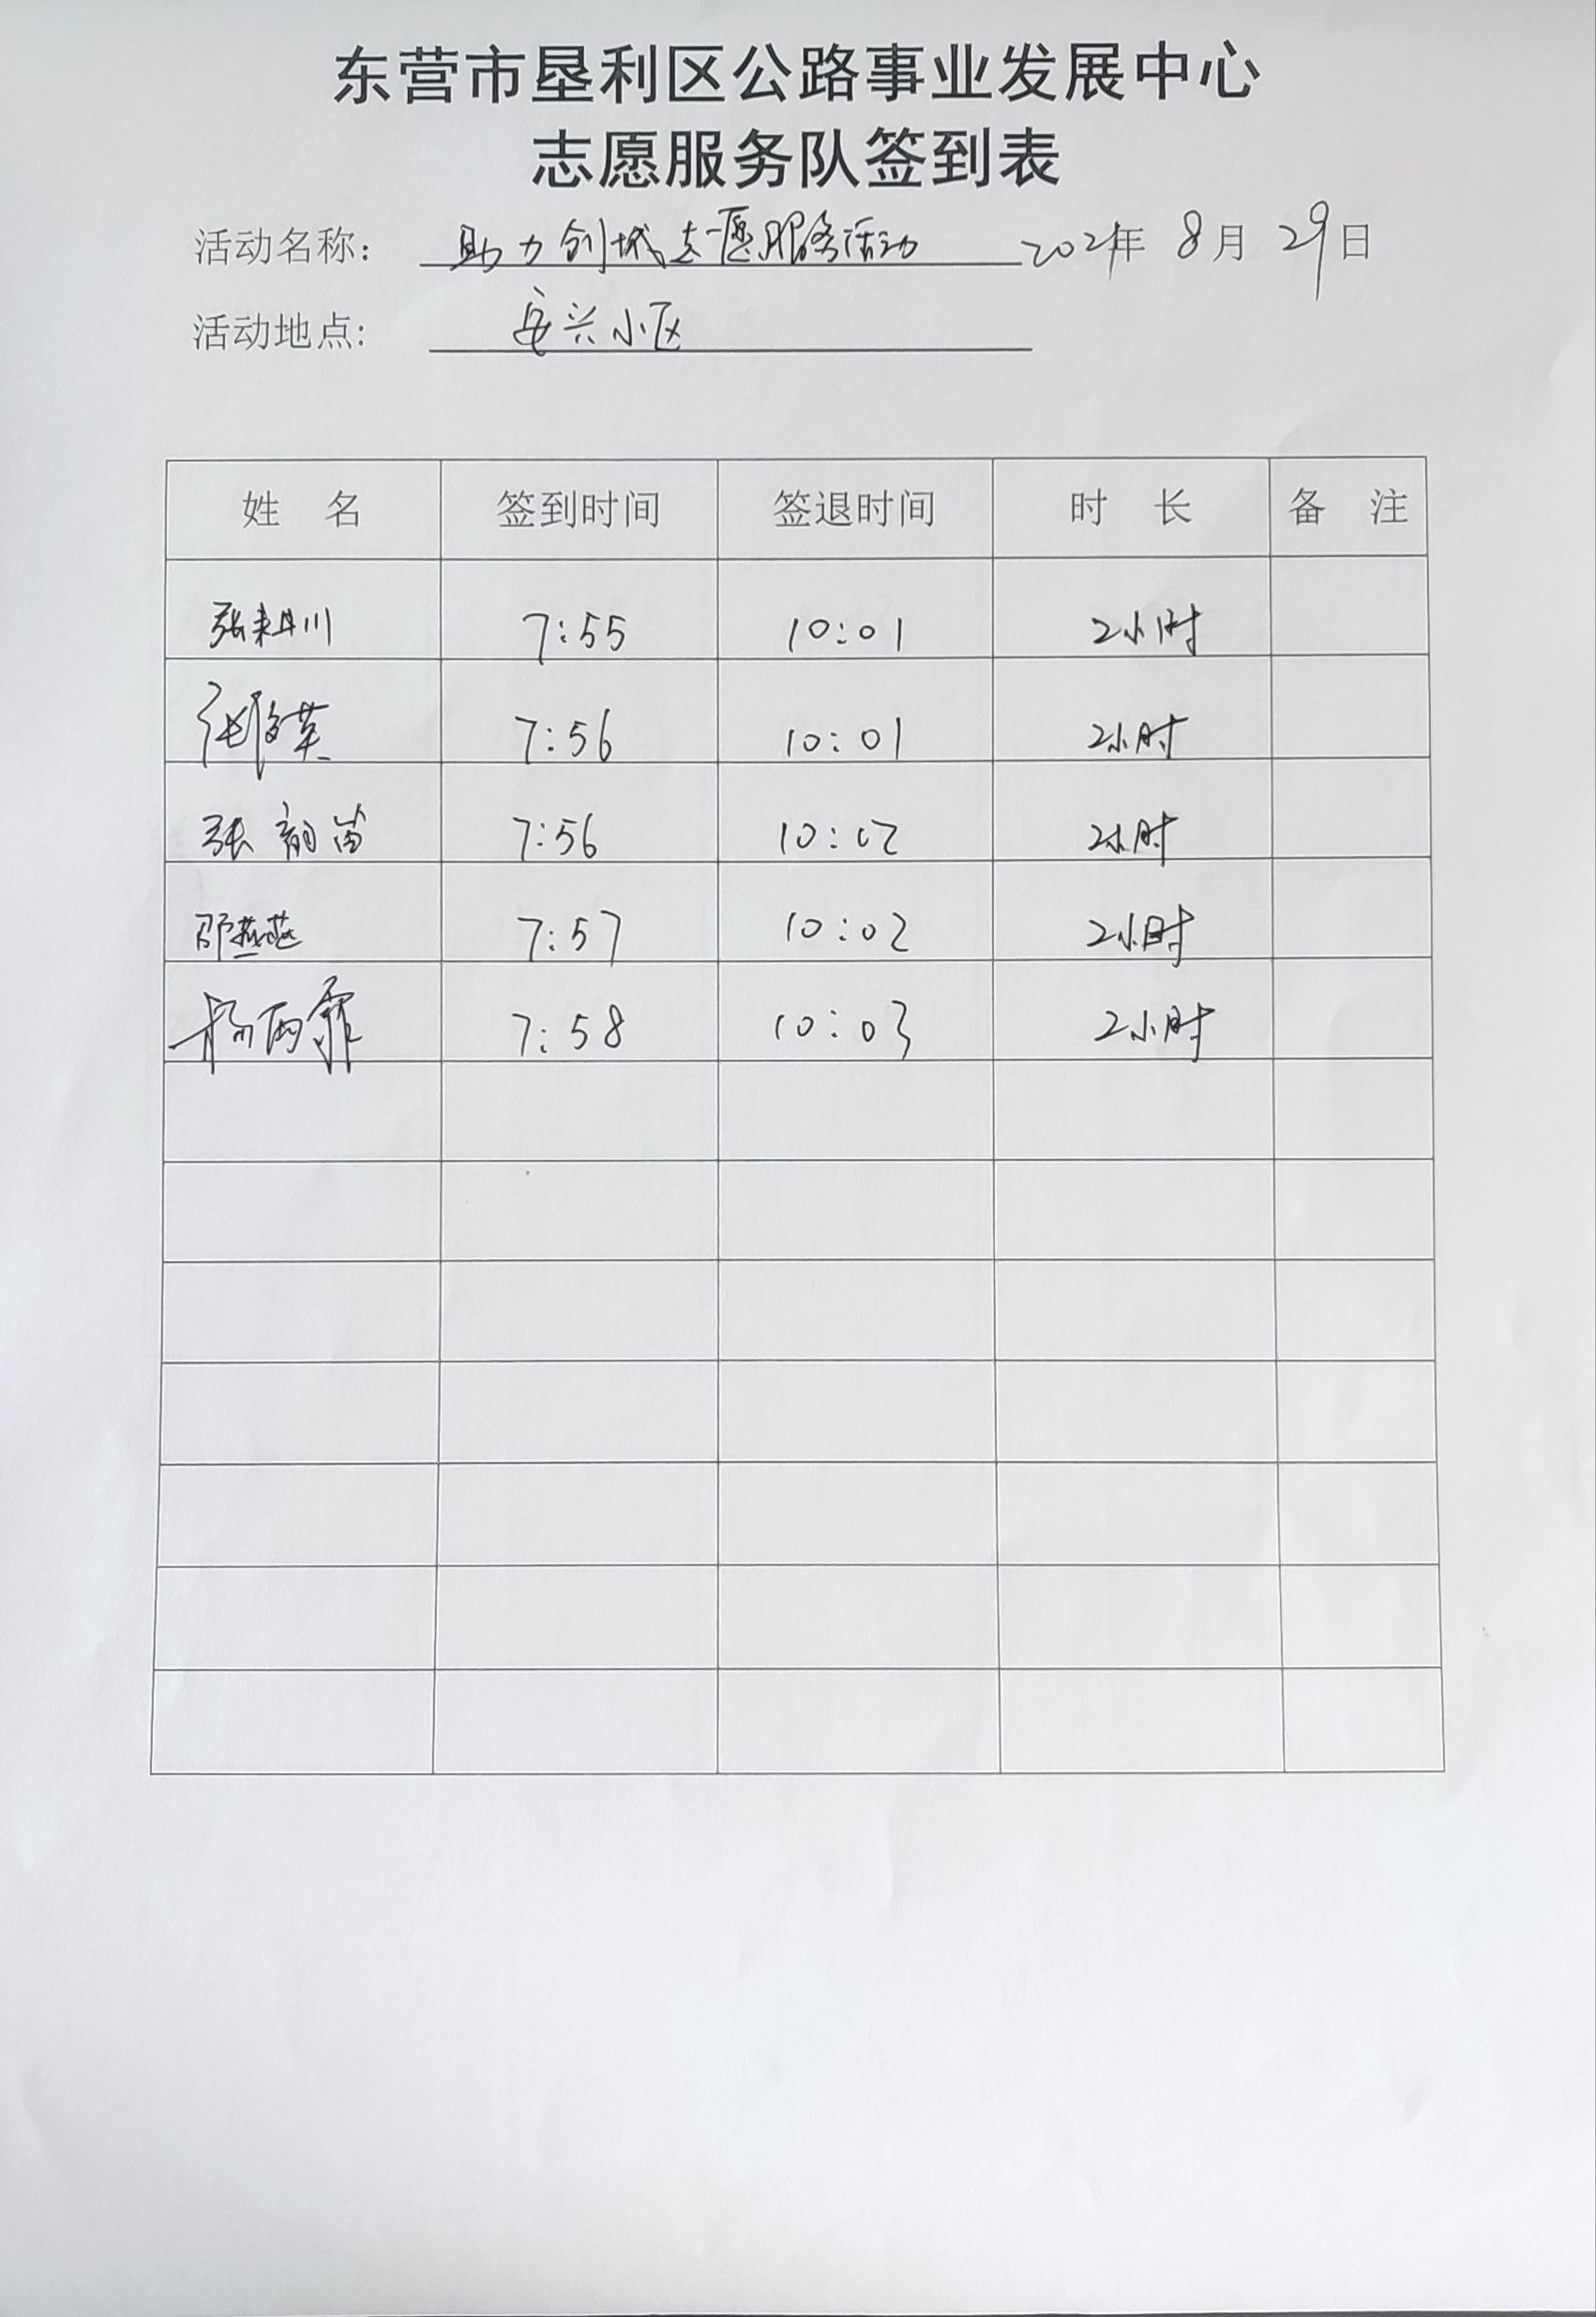 东营市垦利区公路事业发展中心
志愿服务队签到表
活动名称： 助力创城志愿服务活动 2021年 8月 29日
活动地点： 安兴小区
姓 名 签到时间 签退时间 时 长 备 注
张耒丹川 7:55 10:01 2小时
7:56 10:01 2小时
张韵笛 7:56 10:02 2小时
邵燕燕 7:57 10:02 2小时
杨雨霏 7:58 10:03 2小时